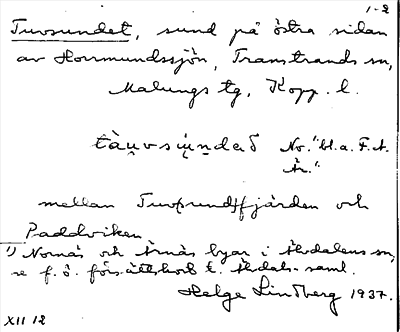 1-2
Tuvsundet, sund på östra sidan
av Horrmundssjön, Transtrands sn,
Malungs tg, Kopp. l.
No. "bl.a. F.A.
Är."
mellan Tuvsundfjärden och
Paddviken
1) Nornäs och Årnäs byar i Älvdalens sn,
se f. ö. försättsbl. t. Älvdals. saml.
Helge Lindberg 1937.
XII 12